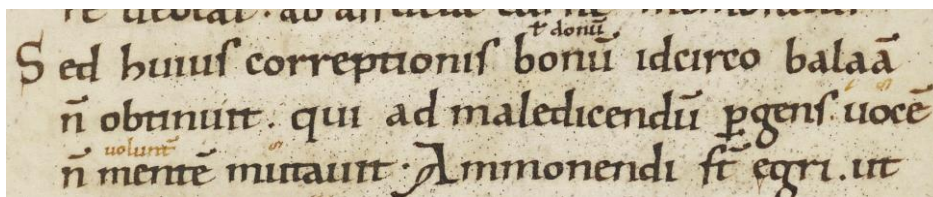 ł donū
Sed huiuſ correptioniſ bonū idcirco balaā
n̄ obtinuit . qui ad maledicendū ꝑgenſ . uocē
uolunt̄
n̄ mentē mutauit · Ammonendi ſt̄ egri . ut